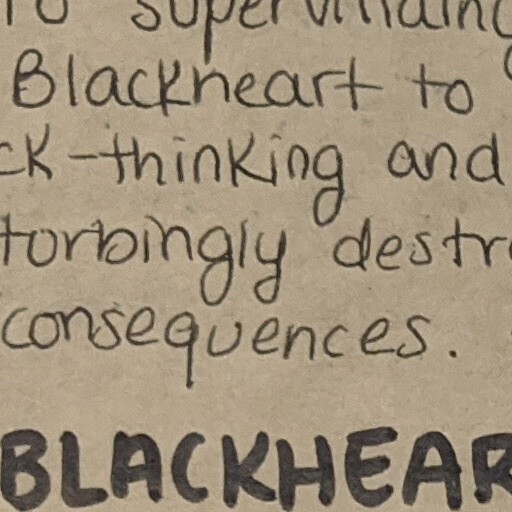 to supervillainc
Blackheart to
ck-thinking and
torbingly destr
consequences.
BLACKHEAR